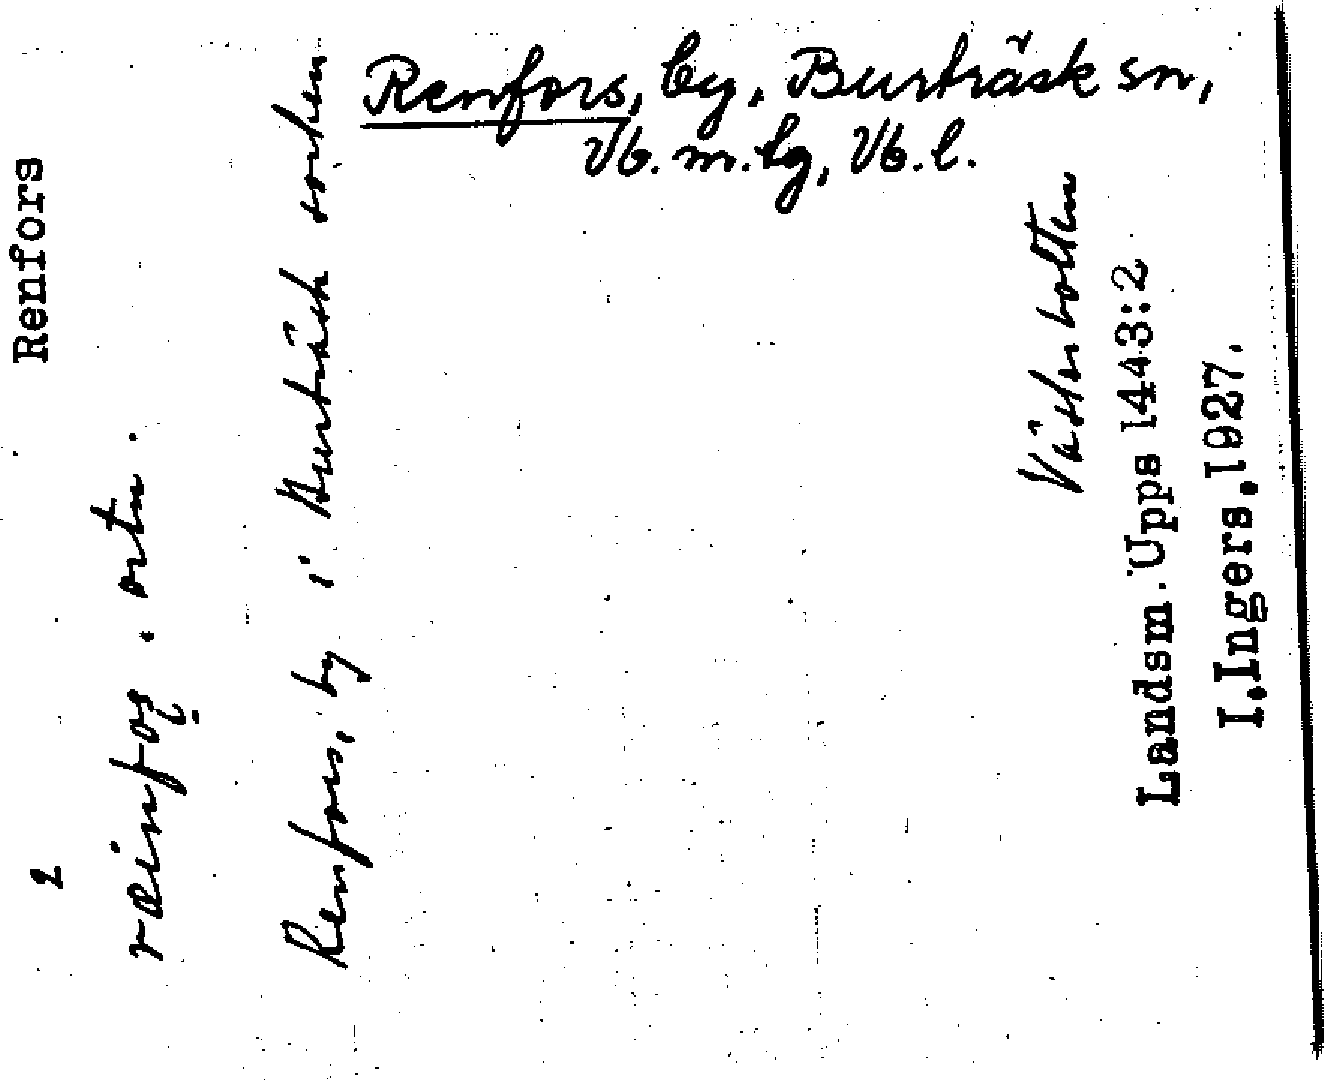 Renfors, by, Burträsk sn,
Vb. m. tg, Vb. l.
Renfors
1
ræinfoș . ortn .
Renfors, by i Burträsk socken
Västerbotten
Landsm. Upps 1443:2
I.Ingers.1927.